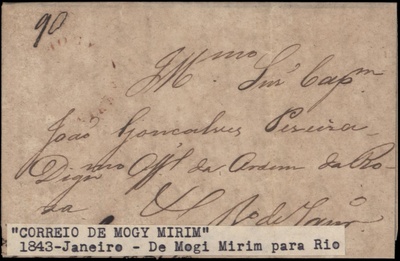 90
Illmo Snr Capm
João Gonçalves Pereira
Dignmo Offl da Ordem da Ro-
za
Ro de Janro
"CORREIO DE MOGY MIRIM"
1843-Janeiro - De Mogi Mirim para Rio